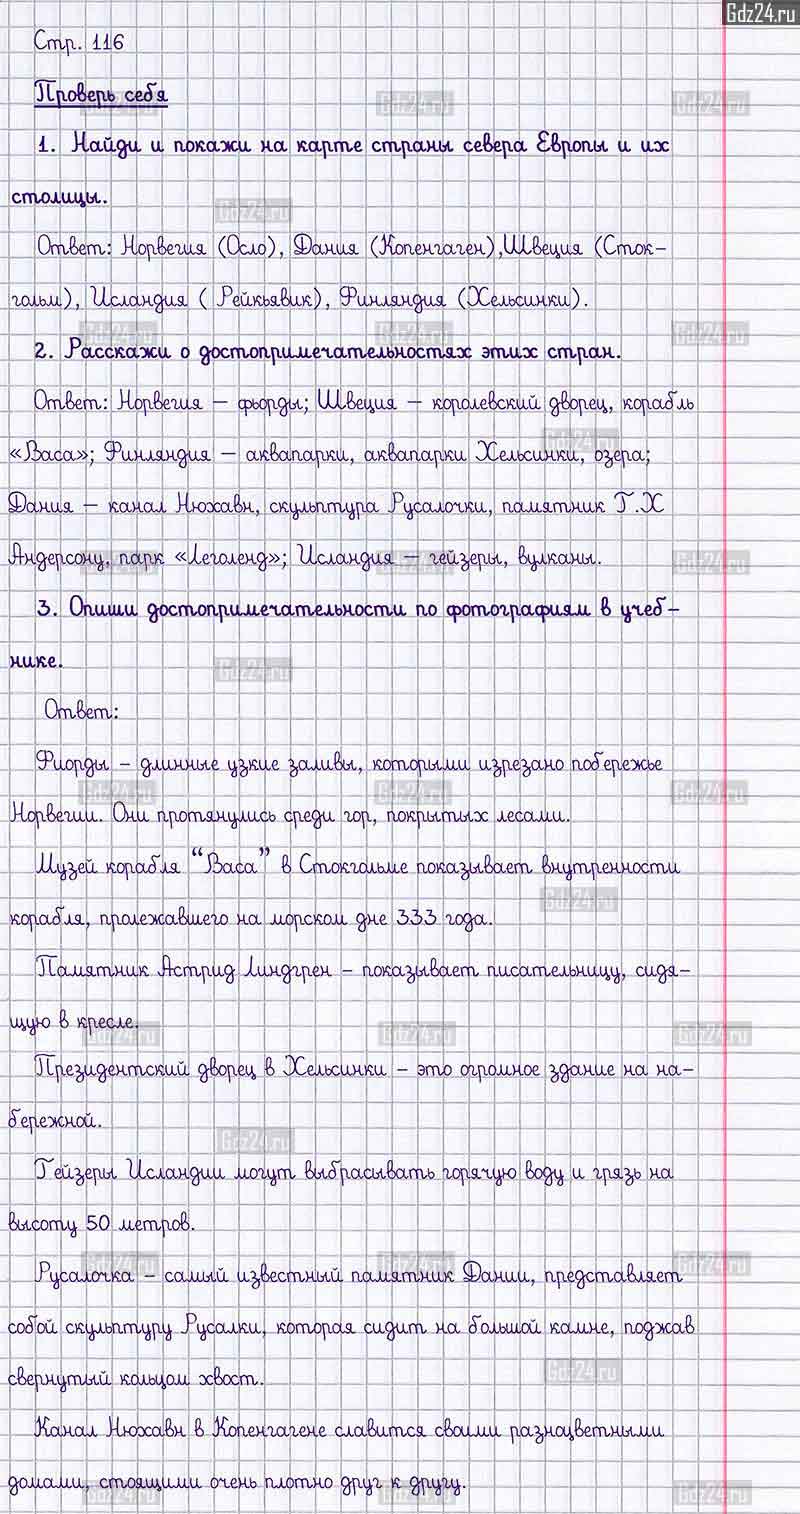 Gdz24.ru
Стр. 116
Проверь себя
1. Найди и покажи на карте страны севера Европы и их
столицы.
Ответ: Норвегия (Осло), Дания (Копенгаген),Швеция (Сток-
гольм), Исландия ( Рейкьявик), Финляндия (Хельсинки).
2. Расскажи о достопримечательностях этих стран.
Ответ: Норвегия – фьорды; Швеция – королевский дворец, корабль
«Васа»; Финляндия – аквапарки, аквапарки Хельсинки, озера;
Дания – канал Нюхавн, скульптура Русалочки, памятник Г.Х
Андерсону, парк «Леголенд»; Исландия – гейзеры, вулканы.
3. Опиши достопримечательности по фотографиям в учеб-
нике.
Ответ:
Фиорды – длинные узкие заливы, которыми изрезано побережье
Норвегии. Они протянулись среди гор, покрытых лесами.
Музей корабля “Васа” в Стокгольме показывает внутренности
корабля, пролежавшего на морском дне 333 года.
Памятник Астрид Линдгрен – показывает писательницу, сидя-
щую в кресле.
Президентский дворец в Хельсинки – это огромное здание на на-
бережной.
Гейзеры Исландии могут выбрасывать горячую воду и грязь на
высоту 50 метров.
Русалочка – самый известный памятник Дании, представляет
собой скульптуру Русалки, которая сидит на большой камне, поджав
свернутый кольцом хвост.
Канал Нюхавн в Копенгагене славится своими разноцветными
домами, стоящими очень плотно друг к другу.